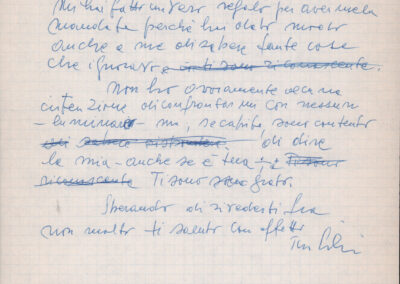 Mi hai fatto un vero regalo per avermela
mandata perché hai dato modo
anche a me di sapere tante cose
che ignoravo e
Non ho ovviamente alcuna
intenzione di confrontarmi con nessun
ma, se capita, sono contento
di dire
la mia - anche se è tua
riconoscente Ti sono grato.
Sperando di rivederti fra
non molto ti saluto con affetto